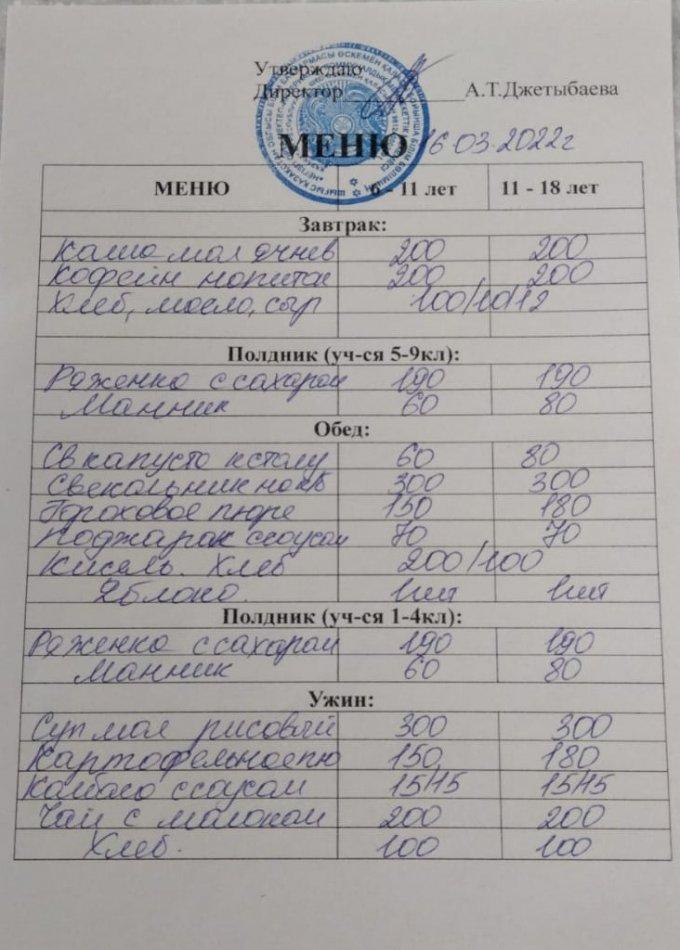 Утверждаю
Директор____________А.Т.Джетыбаева
МЕНЮ 16.03.2022г
МЕНЮ 6 - 11 лет 11 - 18 лет
Завтрак:
Каша мол ячнев 200 200
Кофейн напиток 200 200
Хлеб, масло, сыр 100/10/12
Полдник (уч-ся 5-9кл):
Ряженка с сахаром 190 190
Манник 60 80
Обед:
Св капуста к столу 60 80
Свекольник на кб 300 300
Гороховое пюре 150 180
Поджарок с соусом 70 70
Кисель. Хлеб 200/100
Яблоко. 1шт 1шт
Полдник (уч-ся 1-4кл):
Ряженка с сахаром 190 190
Манник 60 80
Ужин:
Суп мол рисовый 300 300
Картофельное пю 150 180
Колбаса с соусом 15/15 15/15
Чай с молоком 200 200
Хлеб. 100 100